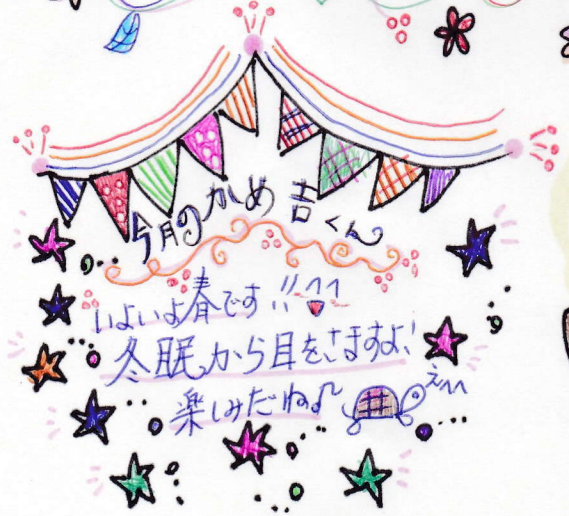 今月のかめ吉くん
いよいよ春です!! ^^
冬眠から目をさますよ!
楽しみだね♪
えへへ